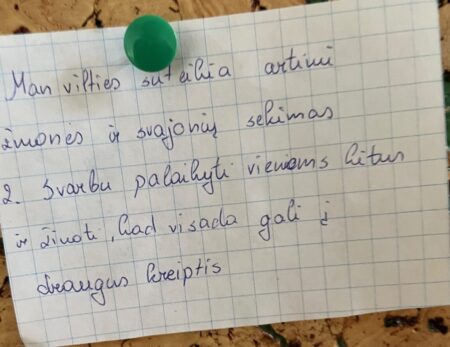 Man vilties suteikia artimi
žmonės ir svajonių sekimas
2. Svarbu palaikyti vieniems kitus
ir žinoti, kad visada gali į
draugus kreiptis